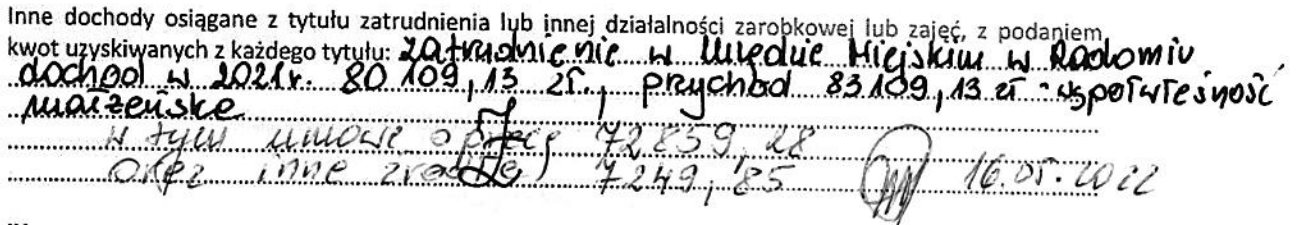 Inne dochody osiągane z tytułu zatrudnienia lub innej działalności zarobkowej lub zajęć, z podaniem
kwot uzyskiwanych z każdego tytułu: zatrudnienie w Urzędzie Miejskim w Radomiu,
dochód w 2021r. 80 109,13 zł., przychód 83 109,13 zł - współwłasność
małżeńska
w tym umowa o pracę 72 859,28
oraz inne źródła 7 249,85 16.05.2022